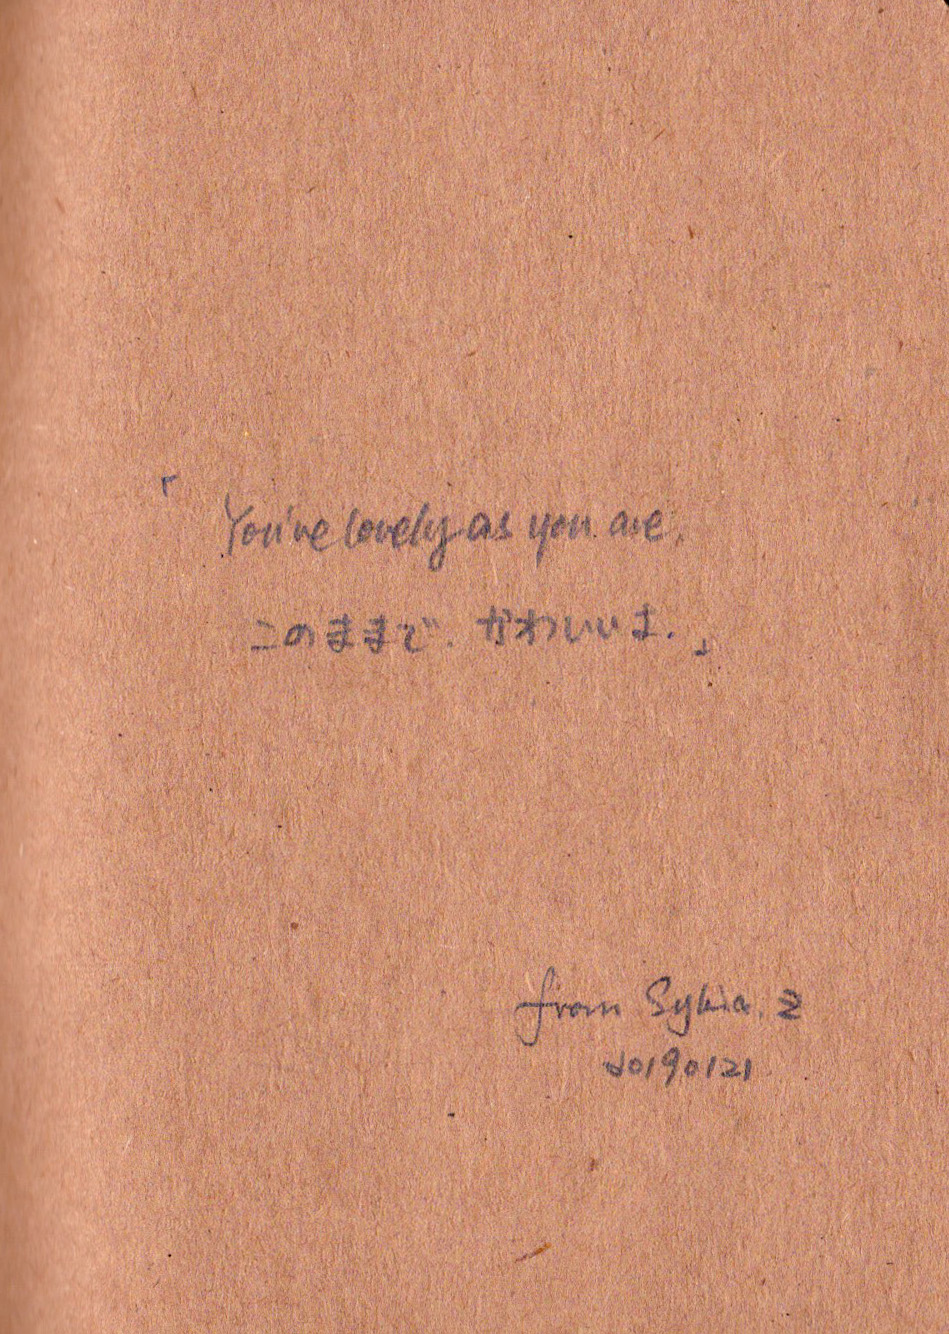 「You're lovely as you are.
このままで、かわいいよ.」
from Sylvia. Z
20190121